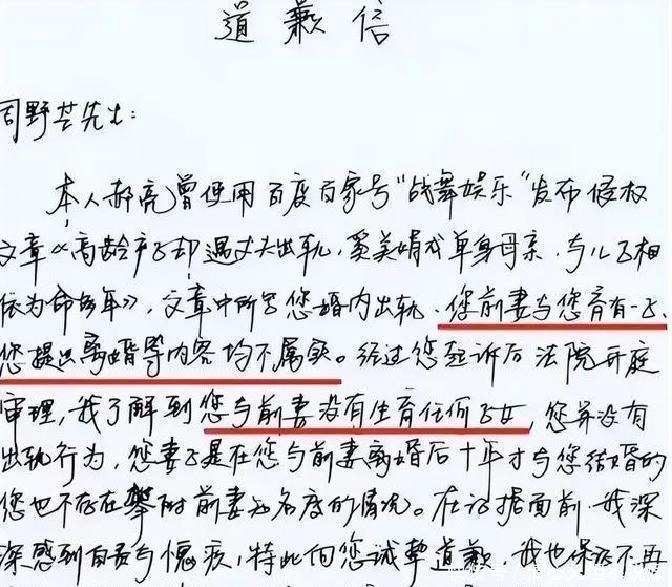 道歉信
周野芒先生：
本人郝亮曾使用百度百家号“战舞娱乐”发布侵权
文章《高龄产子却遇丈夫出轨，奚美娟成单身母亲，与儿子相
依为命多年》，文章中所写您婚内出轨、您前妻与您育有一子、
您提出离婚等内容均不属实。经过您起诉后法院开庭
审理，我了解到您与前妻没有生育任何子女，您并没有
出轨行为，您妻子是在您与前妻离婚后十年才与您结婚的
您也不存在攀附前妻知名度的情况。在证据面前，我深
深感到自责与愧疚，特此向您诚挚道歉，我也保证不再